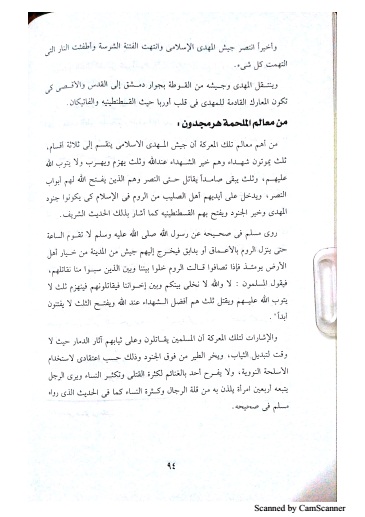 وأخيراً انتصر جيش المهدى الإسلامى وانتهت الفتنة الشرسة وأطفئت النار التى
التهمت كل شىء.
وينتقل المهدى وجيشه من الغوطة بجوار دمشق إلى القدس والأقصى كى
تكون المعارك القادمة للمهدى فى قلب أوربا حيث القسطنطينيه والفاتيكان.
من معالم الملحمة هرمجدون:
من أهم معالم تلك المعركة أن جيش المهدى الاسلامى ينقسم إلى ثلاثة اقسام،
ثلث يموتون شهداء وهم خير الشهداء عندالله وثلث يهزم ويهرب ولا يتوب الله
عليهم، وثلث يبقى صامداً يقاتل حتى النصر وهم الذين يفتح الله لهم أبواب
النصر، ويدخل على أيديهم أهل الصليب من الروم فى الإسلام كى يكونوا جنود
المهدى وخير الجنود ويفتح بهم القسطنطينيه كما أشار بذلك الحديث الشريف.
روى مسلم فى صحيحه عن رسول الله صلى الله عليه وسلم لا تقوم الساعة
حتى ينزل الروم بالأعماق أو بدابق فيخرج إليهم جيش من المدينة من خيار أهل
الأرض يومئذ فإذا تصافوا قالت الروم خلوا بيننا وبين الذين سبوا منا نقاتلهم،
فيقول المسلمون : لا والله لا نخلى بينكم وبين إخواننا فيقاتلونهم فينهزم ثلث لا
يتوب الله عليهم ويقتل ثلث هم أفضل الشهداء عند الله ويفتح الثلث لا يفتنون
ابداً".
والإشارات لتلك المعركة أن المسلمين يقاتلون وعلى ثيابهم آثار الدمار حيث لا
وقت لتبديل الثياب، ويخر الطير من فوق الجنود وذلك حسب اعتقادى لاستخدام
الأسلحة النووية، ولا يفرح أحد بالغنائم لكثرة القتلى وتكثر النساء ويرى الرجل
يتبعه أربعين امرأة يلذن به من قلة الرجال وكثرة النساء كما فى الحديث الذى رواه
مسلم فى صحيحه.
٩٤
Scanned by CamScanner